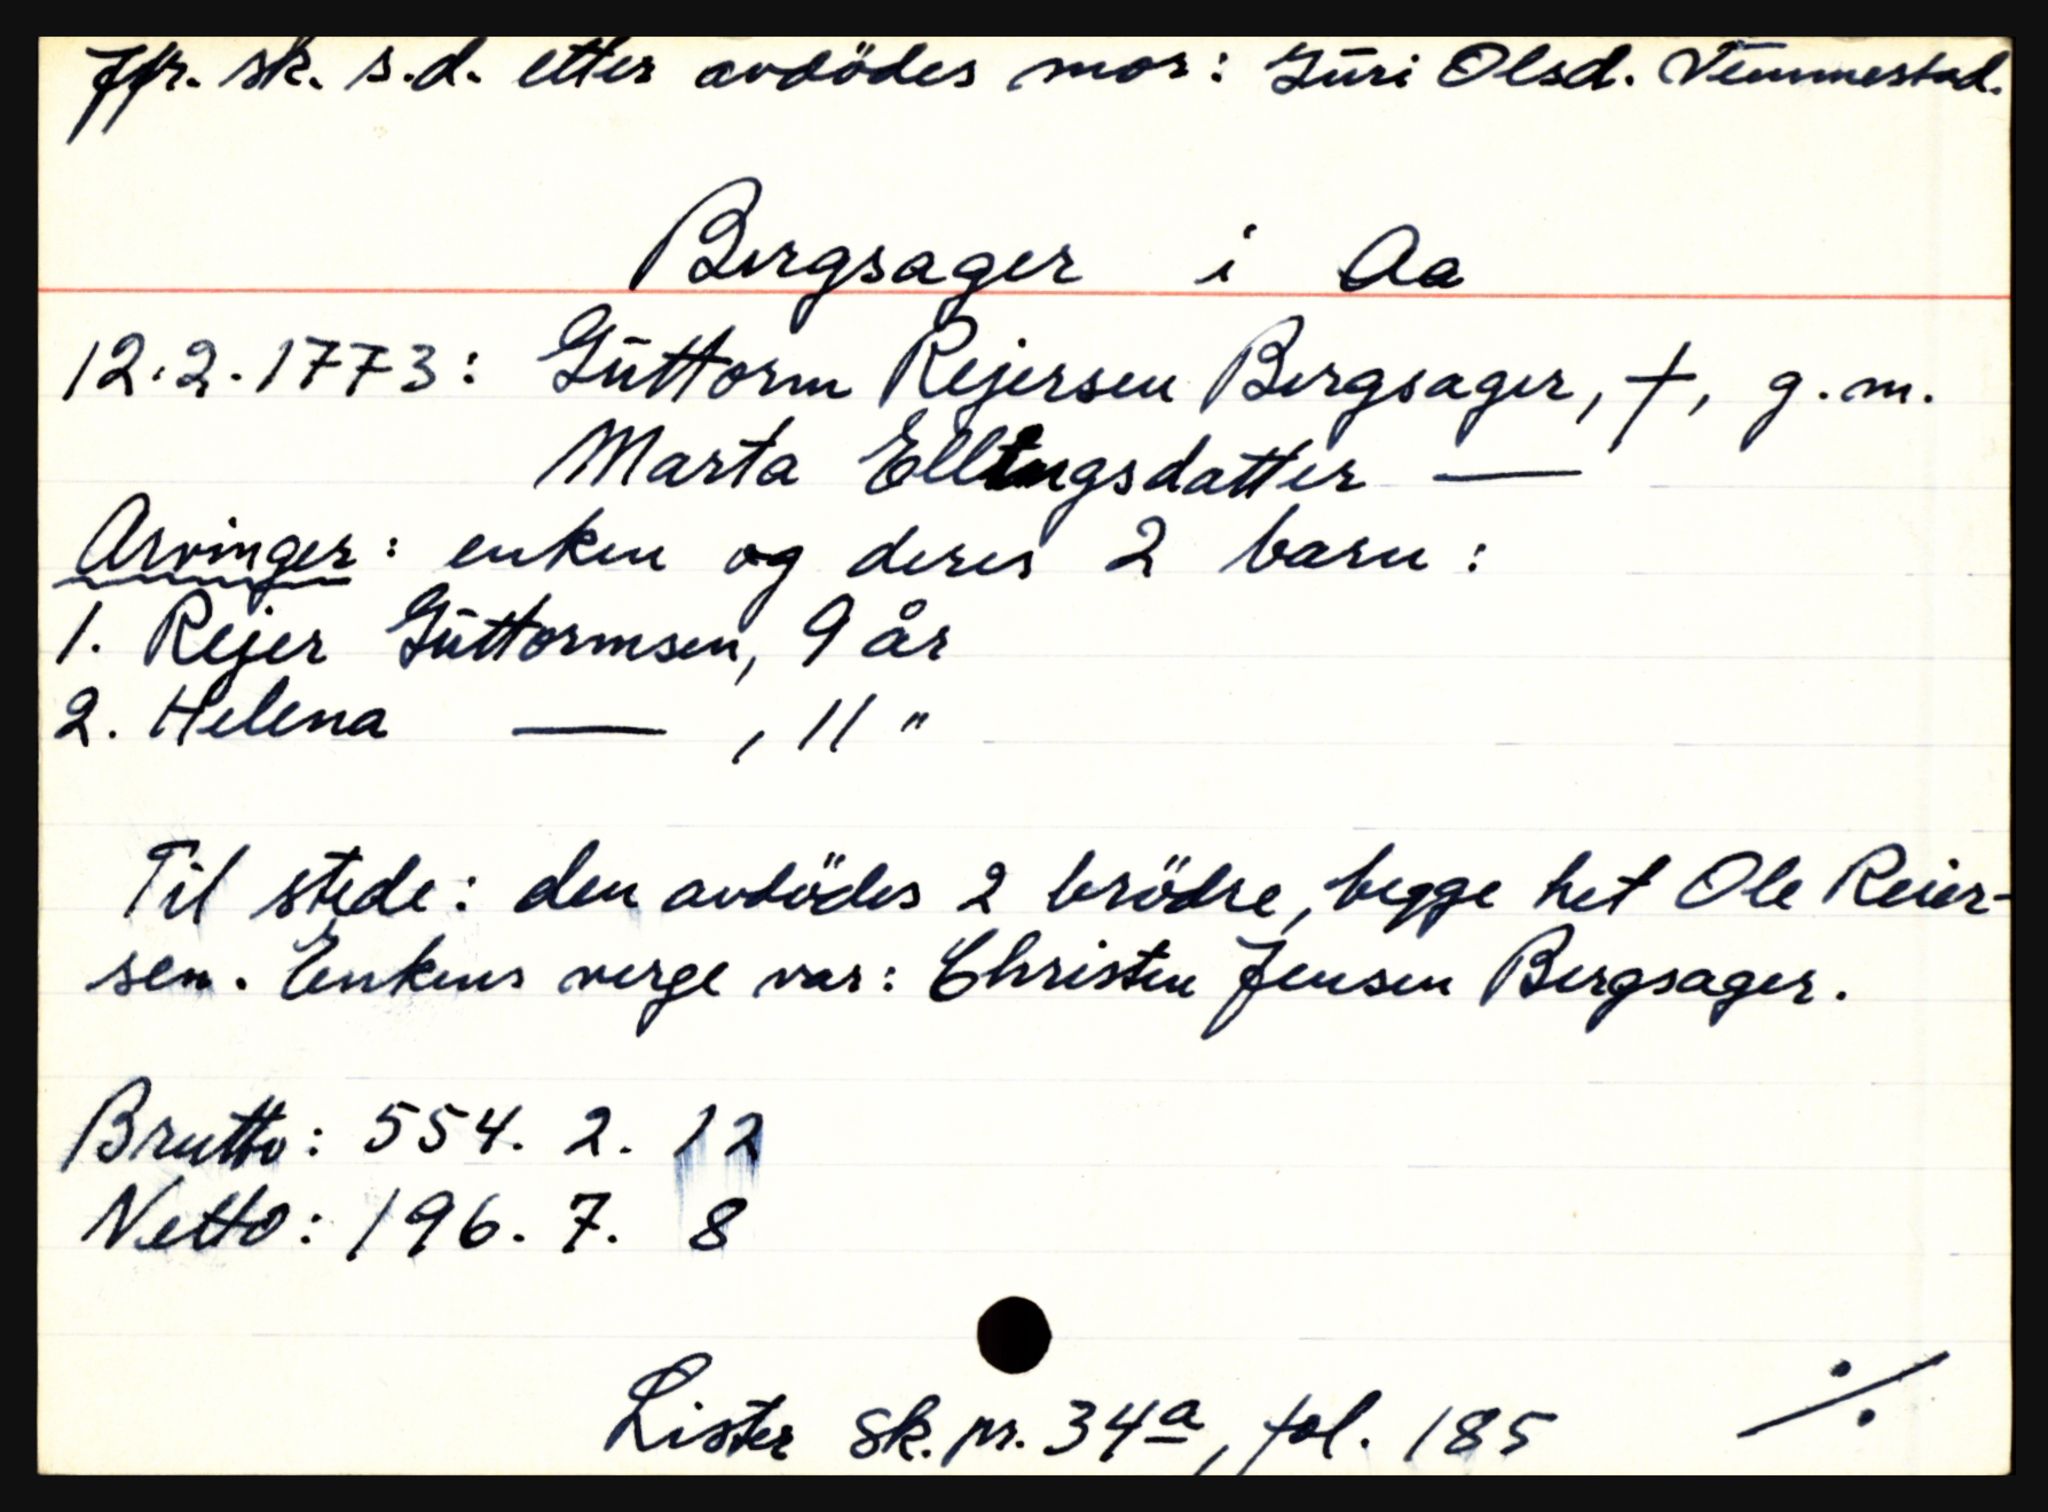 Jfr. sk. s.d. etter avdödes mor: Guri Olsd. Vemmestad.
Bergsager i Aa
12.2.1773: Guttorm Rejersen Bergsager, †, g.m.
Marta Ellingsdatter —
Arvinger: enken og deres 2 barn:
1. Rejer Guttormsen, 9 år
2. Helena — , 11 "
Til stede: den avdödes 2 brödre, begge het Ole Reier-
sen. Enkens verge var: Christen Jensen Bergsager.
Brutto: 554. 2. 12
Netto: 196. 7. 8
Lister sk.pr. 34a, fol. 185 ·/.